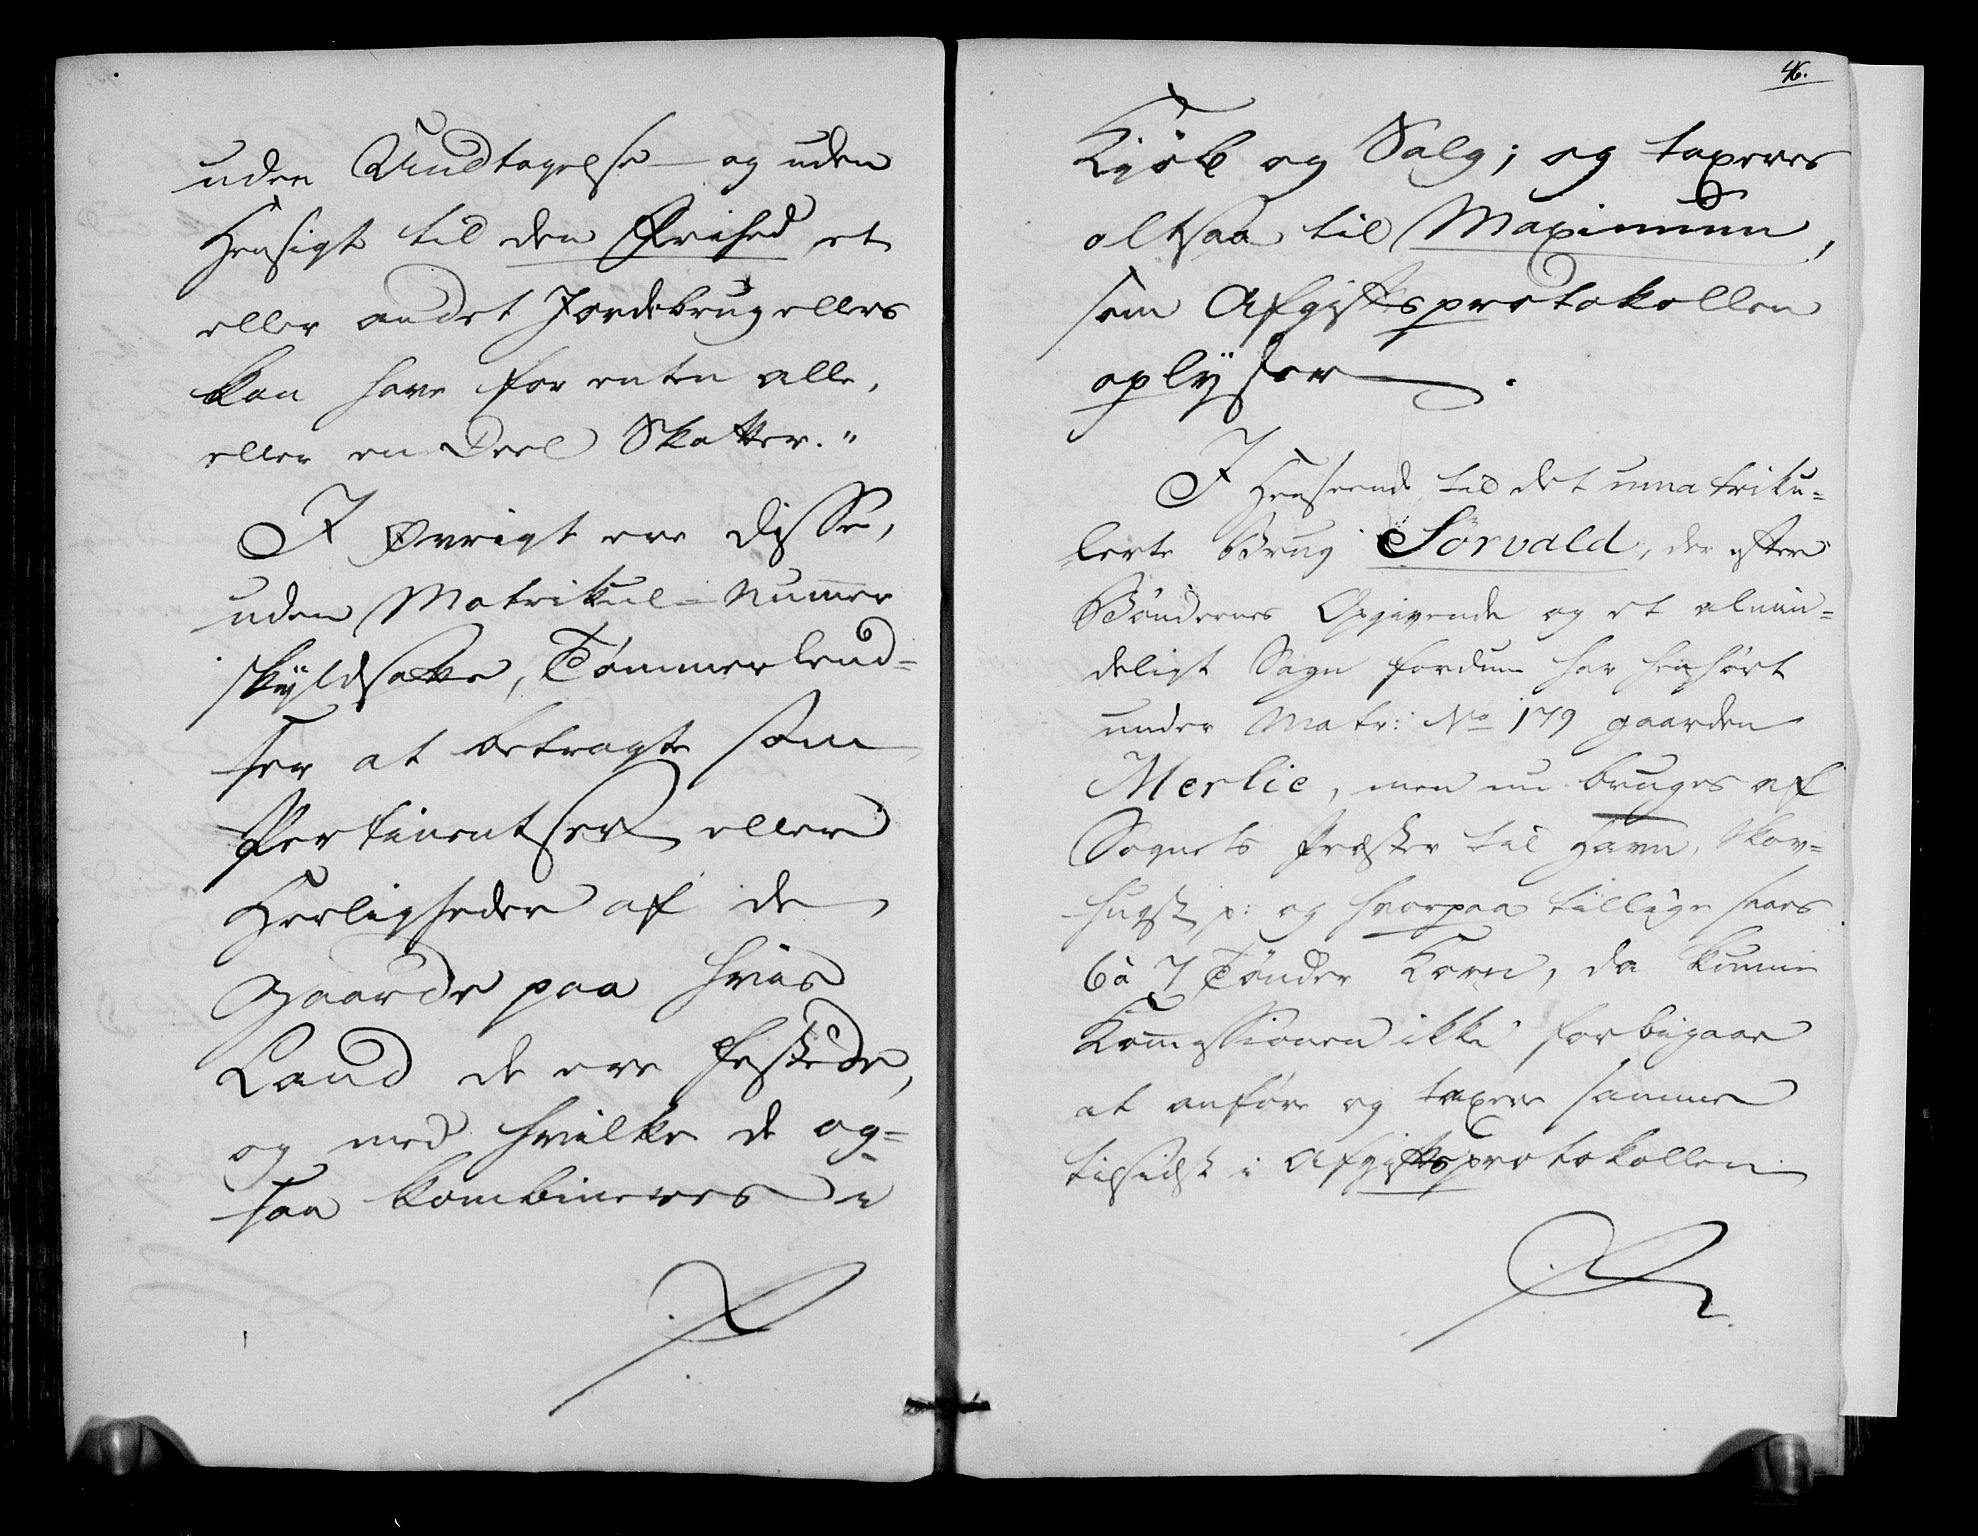 uden Undtagelse og uden
Hensigt til den Frihed et
eller andet Jordebrug ellers
kan have for enten alle,
eller en Deel Skatter."
I Øvrigt ere disse,
uden Matrikul-Nummer
skyldsatte, Tømmerlend=
ser at betragte som
Pertinentser eller
Herligheder af de
Gaarde paa hvis
Land de ere hestede,
og med hvilke de og=
saa kombineres i
46.
Kjöb og Salg; og taxeres
altsaa til Maximum,
som Afgiftsprotokollen
oplÿser.
I Henseende til det umatriku=
lerte Brug Sörvald, der efter
Böndernes Opgivende og et almin=
deligt Sagn fordum har henhört
under Matr: No 179 gaarden
Merlie, men nu bruges af
Sognets Præster til Havn, Skov=
hugst p: og hvorpaa tillige saaes
6 à 7 Tönder Korn, da kunne
Kommissionen ikke forbigaae
at anföre og taxere samme
tilsidst i Afgiftsprotokollen